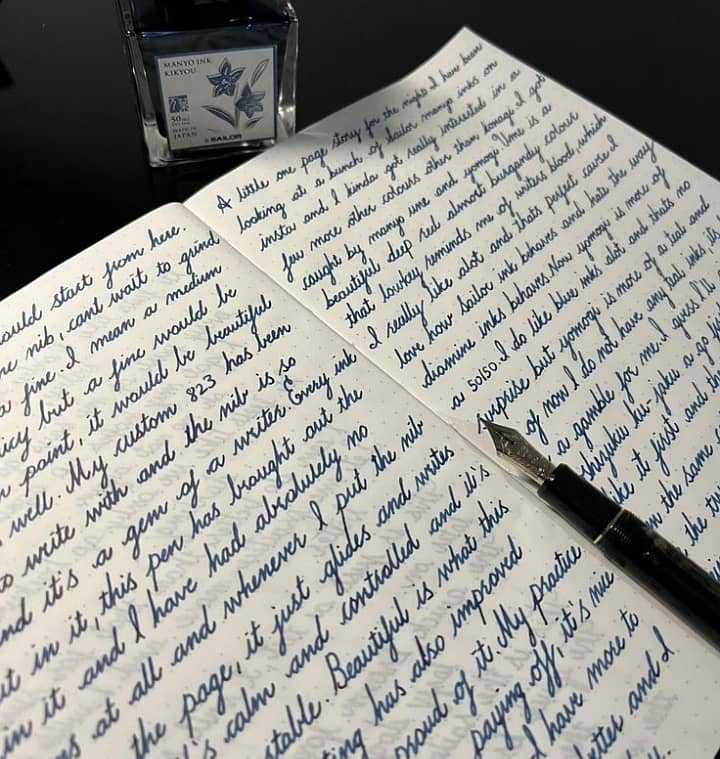 MANYO INK
KIKYOU
50ml
MADE IN
JAPAN
SAILOR
ould start from here.
nib, cant wait to grind
a fine. I mean a medium
icy but a fine would be
point, it would be beautiful
well. My custom 823 has been
to write with and the nib is so
nd it's a gem of a writer. Every ink
ut in it, this pen has brought out the
in it and I have had absolutely no
ms at all and whenever I put the nib
the page, it just glides and writes
it's calm and controlled and it's
stable. Beautiful is what this
ting has also improved
proud of it. My practice
paying off, it's nice
I have more to
and I
A little one page story for the night. I have been
looking at a bunch of Sailor manyo inks on
insta and I kinda got really interested in a
few more other colours other than konagi. I got
caught by manyo ume and yomogi. Ume is a
beautiful deep red almost burgandy colour
that lowkey reminds me of writers blood, which
I really like alot and thats perfect cause I
love how sailor ink behaves and hate the way
diamine inks behaves. Now yomogi is more of
a 50/50. I do like blue inks alot and thats no
surprise but yomogi is more of a teal and
of now I do not have any teal inks, its
a gamble for me. I guess I'll
a go
like it first and
the same
the